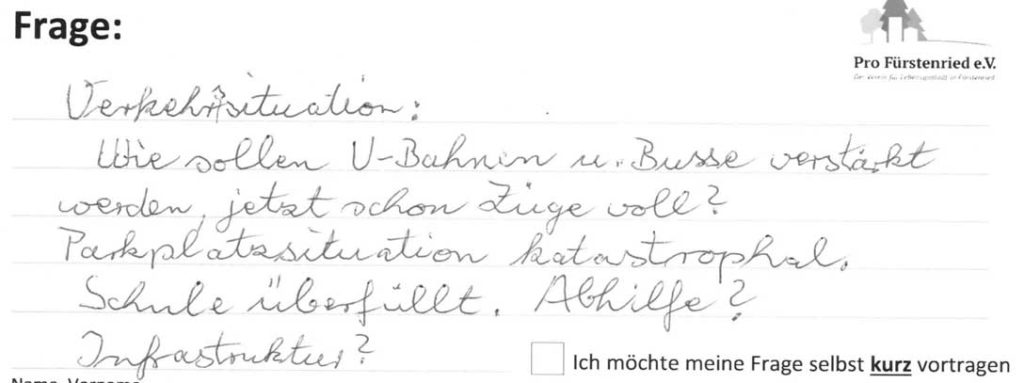 Frage:
Pro Fürstenried e.V.
Der Verein für Lebensqualität in Fürstenried
Verkehrssituation:
Wie sollen U-Bahnen u. Busse verstärkt
werden, jetzt schon Züge voll?
Parkplatzsituation katastrophal.
Schule überfüllt. Abhilfe?
Infrastruktur?
Ich möchte meine Frage selbst kurz vortragen
Name, Vorname